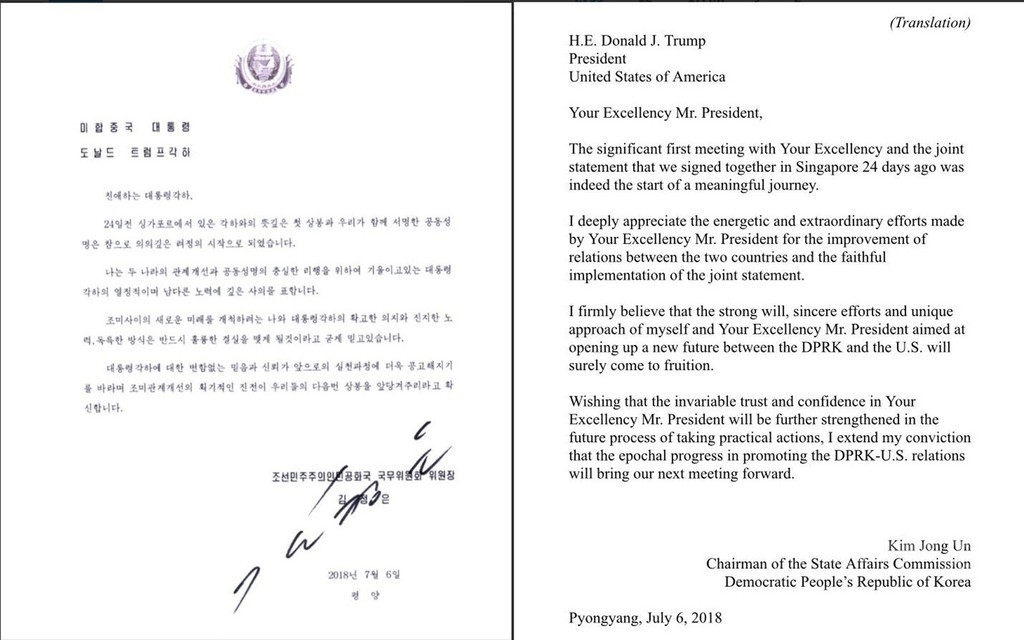 미합중국 대통령
도날드 트럼프각하
친애하는 대통령각하,
24일전 싱가포르에서 있은 각하와의 뜻깊은 첫 상봉과 우리가 함께 서명한 공동성
명은 참으로 의의깊은 려정의 시작으로 되였습니다.
나는 두 나라의 관계개선과 공동성명의 충실한 리행을 위하여 기울이고있는 대통령
각하의 열정적이며 남다른 노력에 깊은 사의를 표합니다.
조미사이의 새로운 미래를 개척하려는 나와 대통령각하의 확고한 의지와 진지한 노
력,독특한 방식은 반드시 훌륭한 결실을 맺게 될것이라고 굳게 믿고있습니다.
대통령각하에 대한 변함없는 믿음과 신뢰가 앞으로의 실천과정에 더욱 공고해지기
를 바라며 조미관계개선의 획기적인 진전이 우리들의 다음번 상봉을 앞당겨주리라고 확
신합니다.
조선민주주의인민공화국 국무위원회 위원장
김 정 은
2018년 7월 6일
평 양
(Translation)
H.E. Donald J. Trump
President
United States of America
Your Excellency Mr. President,
The significant first meeting with Your Excellency and the joint
statement that we signed together in Singapore 24 days ago was
indeed the start of a meaningful journey.
I deeply appreciate the energetic and extraordinary efforts made
by Your Excellency Mr. President for the improvement of
relations between the two countries and the faithful
implementation of the joint statement.
I firmly believe that the strong will, sincere efforts and unique
approach of myself and Your Excellency Mr. President aimed at
opening up a new future between the DPRK and the U.S. will
surely come to fruition.
Wishing that the invariable trust and confidence in Your
Excellency Mr. President will be further strengthened in the
future process of taking practical actions, I extend my conviction
that the epochal progress in promoting the DPRK-U.S. relations
will bring our next meeting forward.
Kim Jong Un
Chairman of the State Affairs Commission
Democratic People's Republic of Korea
Pyongyang, July 6, 2018